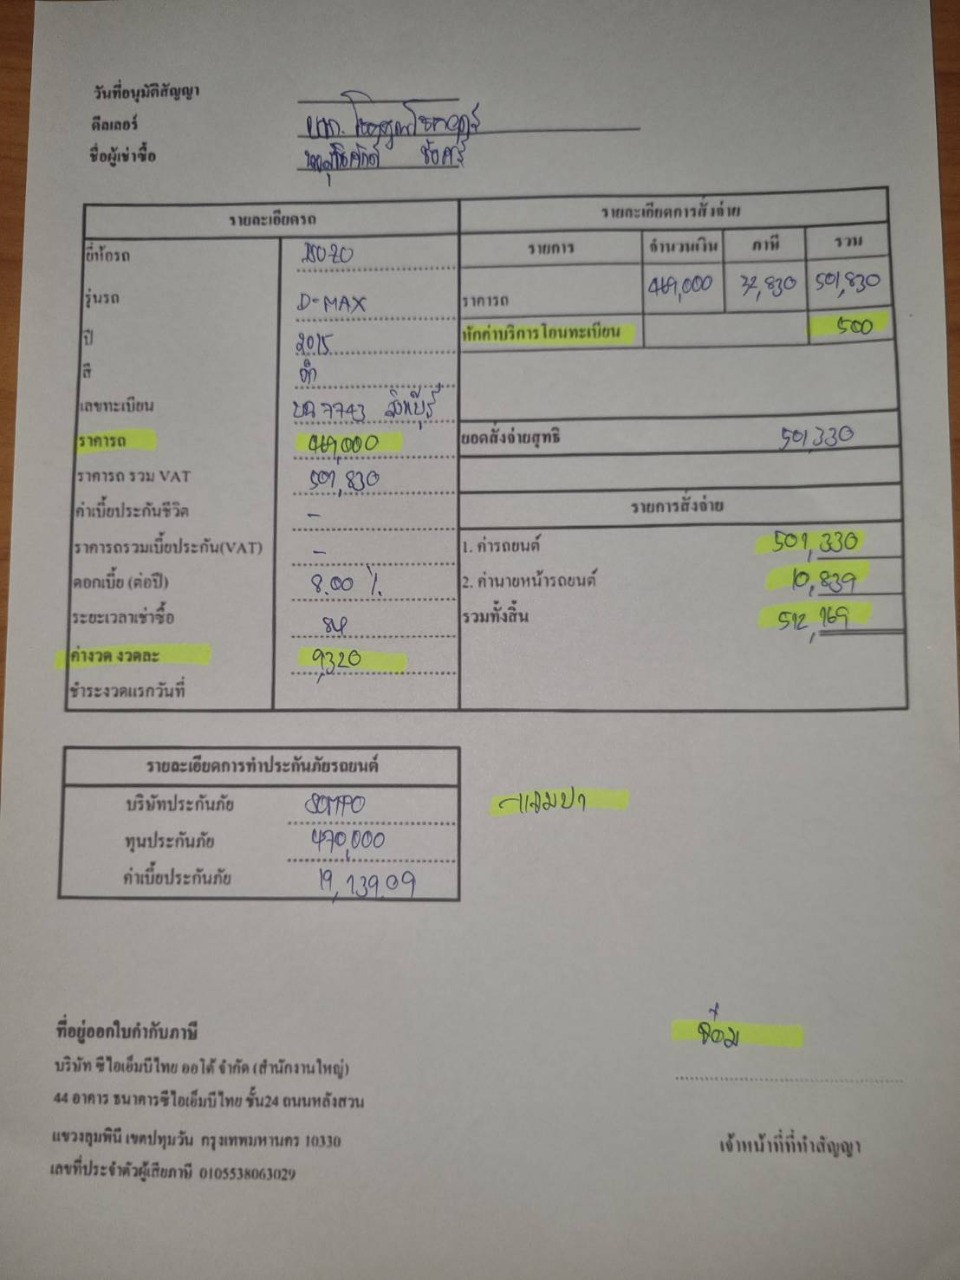 วันที่อนุมัติสัญญา
ดีลเลอร์ หจก.
ชื่อผู้เช่าซื้อ
รายละเอียดรถ
ยี่ห้อรถ ISUZU
รุ่นรถ D-MAX
ปี 2015
สี ดำ
เลขทะเบียน 7743 สิงห์บุรี
ราคารถ 469,000
ราคารถ รวม VAT 501,830
ค่าเบี้ยประกันชีวิต -
ราคารถรวมเบี้ยประกัน(VAT) -
ดอกเบี้ย (ต่อปี) 8.00 %
ระยะเวลาเช่าซื้อ 84
ค่างวด งวดละ 9,320
ชำระงวดแรกวันที่
รายละเอียดการสั่งจ่าย
รายการ จำนวนเงิน ภาษี รวม
ราคารถ 469,000 32,830 501,830
หักค่าบริการโอนทะเบียน 500
ยอดสั่งจ่ายสุทธิ 501,330
รายการสั่งจ่าย
1. ค่ารถยนต์ 501,330
2. ค่านายหน้ารถยนต์ 10,839
รวมทั้งสิ้น 512,169
รายละเอียดการทำประกันภัยรถยนต์
บริษัทประกันภัย SOMPO
ทุนประกันภัย 470,000
ค่าเบี้ยประกันภัย 19,139.09
ที่อยู่ออกใบกำกับภาษี
บริษัท ซีไอเอ็มบีไทย ออโต้ จำกัด (สำนักงานใหญ่)
44 อาคาร ธนาคารซีไอเอ็มบีไทย ชั้น24 ถนนหลังสวน
แขวงลุมพินี เขตปทุมวัน กรุงเทพมหานคร 10330
เลขที่ประจำตัวผู้เสียภาษี 0105538063029
เจ้าหน้าที่ที่ทำสัญญา